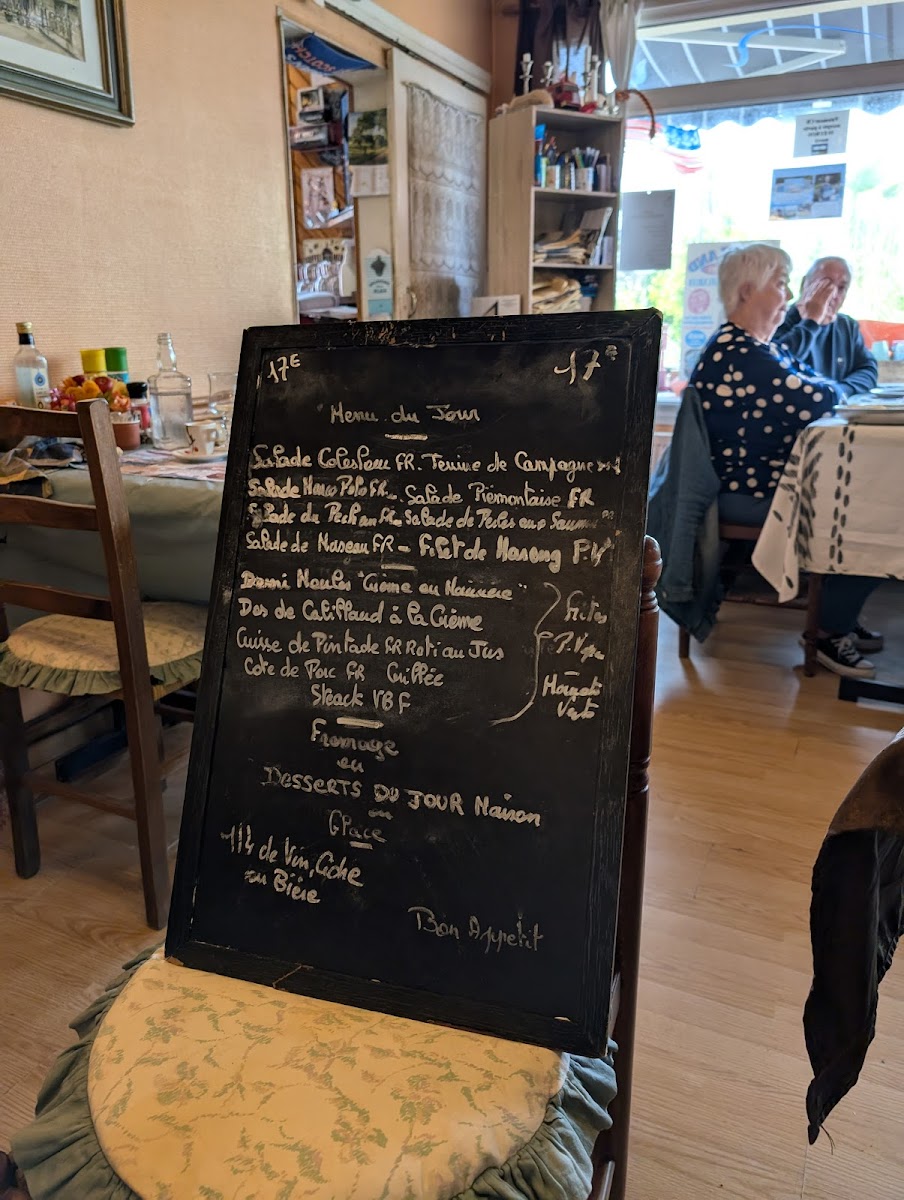 17€ 17€
Menu du Jour
Salade Coleslaw FR. Terrine de Campagne
Salade Marco Polo FR. Salade Piémontaise FR
Salade du Pêcheur FR. Salade de Perles aux Saumon
Salade de Museau FR - Filet de Hareng P.V
Demi Moules "Crème ou Marinière"
Dos de Cabillaud à la Crème
Cuisse de Pintade FR Roti au Jus
Cote de Porc FR Grillée
Steack VBF
Frites
P. Vap
Haricots
Verts
Fromage
ou
DESSERTS DU JOUR Maison
ou
Glace
1/4 de Vin, Cidre
ou Bière
Bon Appetit